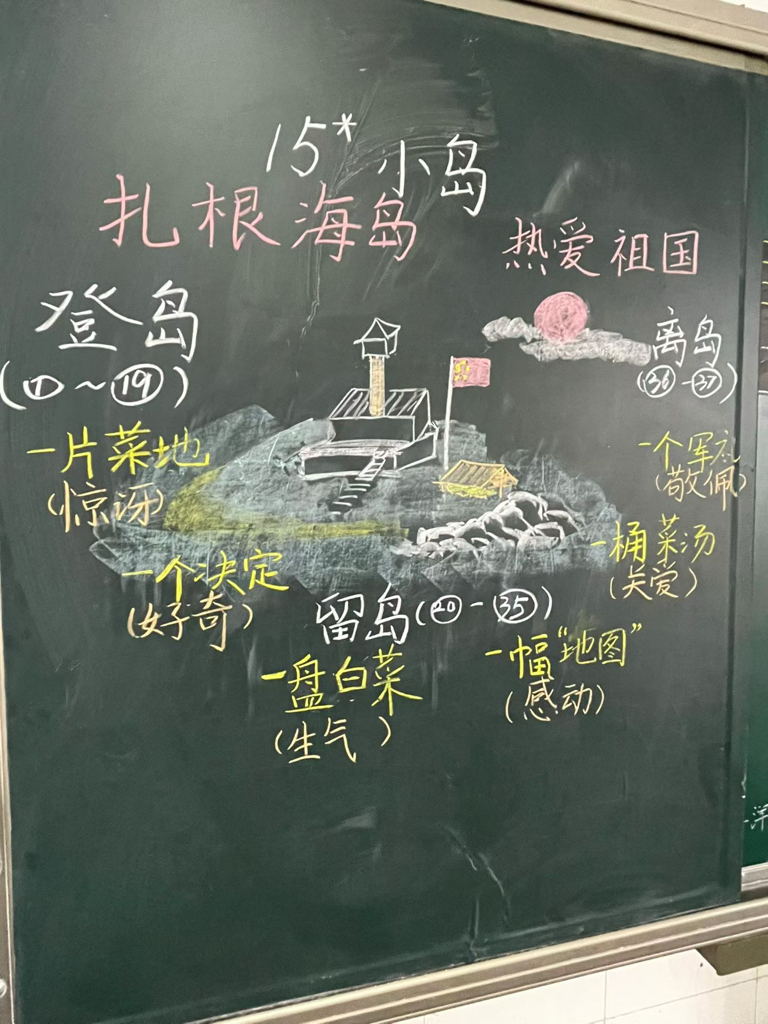 15* 小岛
扎根海岛
热爱祖国
登岛
(①～⑲)
一片菜地
(惊讶)
一个决定
(好奇)
留岛(⑳-㉟)
一盘白菜
(生气)
一幅“地图”
(感动)
一桶菜汤
(关爱)
离岛
(㊱-㊲)
一个军礼
(敬佩)
洋